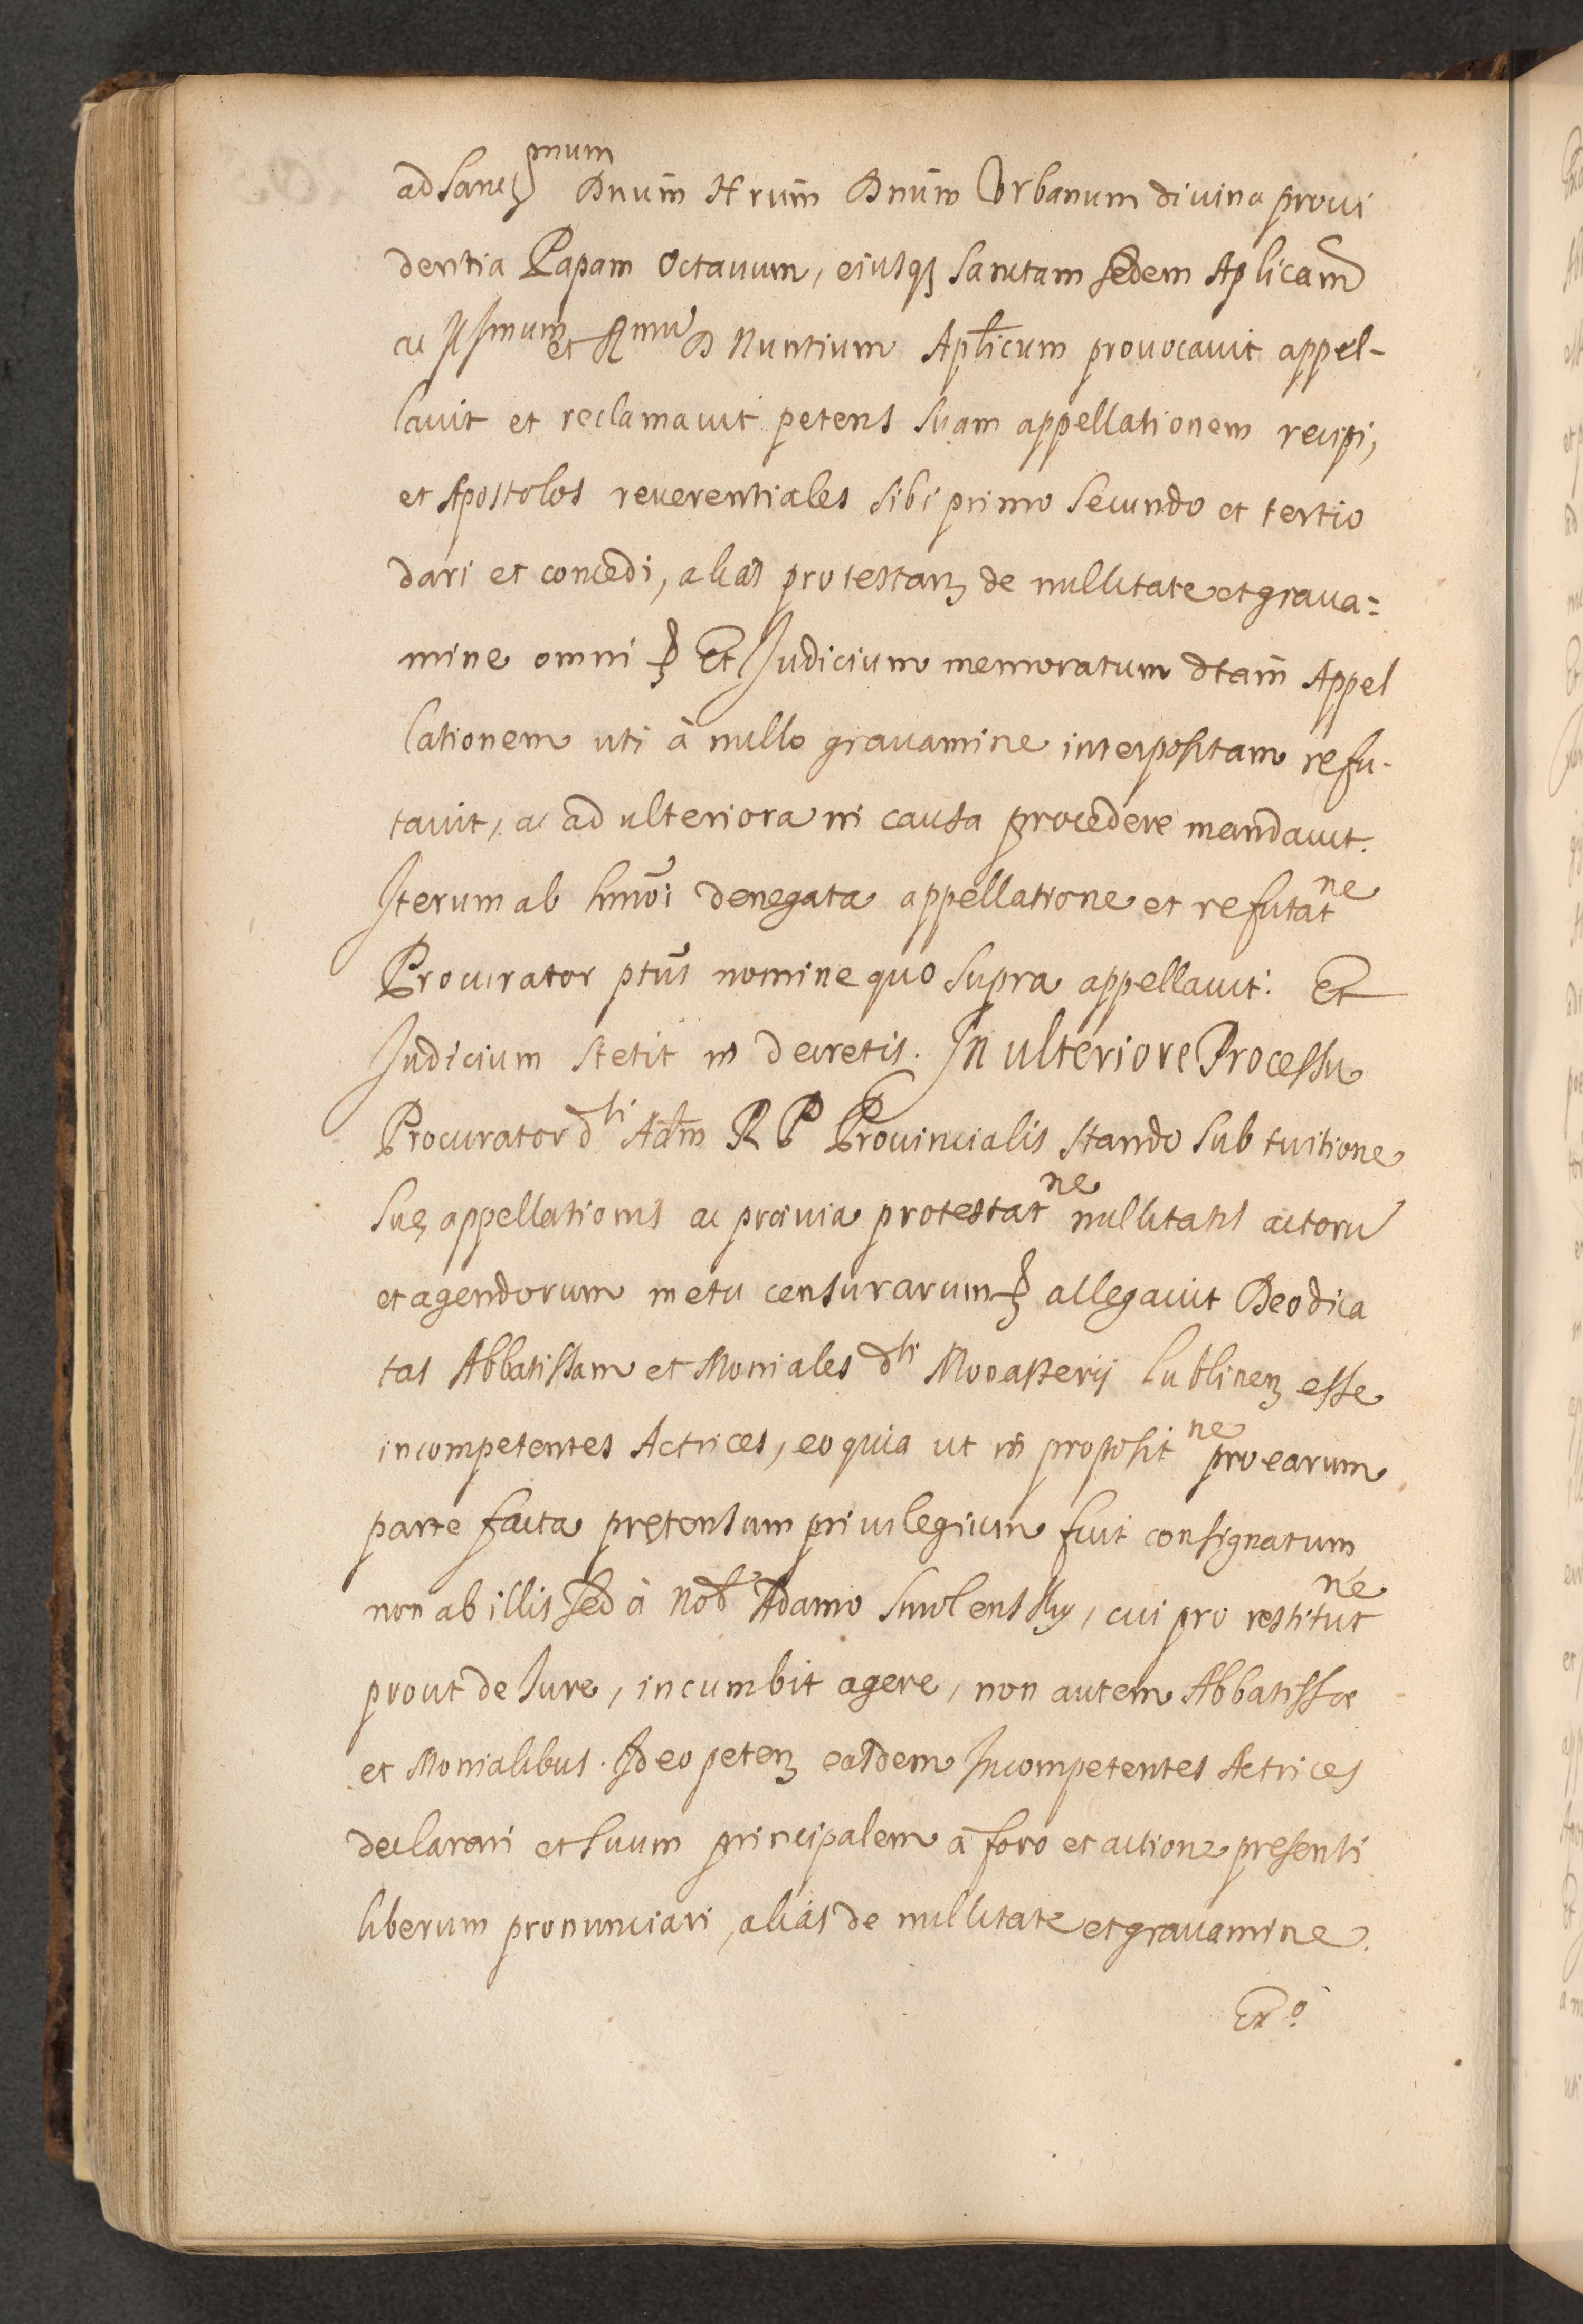 ad Sanctissmum Dnum Nrum Dnum Vrbanum diuina proui
dentia Papam Octauum, eiusq₃ Sanctam Sedem Aplicam
ac Illsmum et Rmu D Nuntium Aplicum prouocauit appel-
lauit et reclamauit petens suam appellationem recipi,
et Apostolos reuerentiales sibi primo secundo et tertio
dari et concedi, alias protestan₃ de nullitate et graua=
mine omni Et Judicium memoratum dtam Appel
lationem uti à nullo grauamine interpositam refu-
tauit, ac ad ulteriora in causa procedere mandauit.
Iterum ab hmoi denegata appellatione et refutatne
Procurator ptus nomine quo supra appellauit: Et
Judicium stetit in decretis. In ulteriore Processu
Procurator dti Adm R P Prouincialis stando sub tuitione
suę appellationis ac præuia protestatne nullitatis actoru
et agendorum metu censurarum allegauit Deodica
tas Abbatissam et Moniales dti Monasterij Lublinen₃ esse
incompetentes Actrices, eo quia ut in propositne pro earum
parte facta pretensum priuilegium fuit consignatum
non ab illis sed à Nob Adamo Smolensky, cui pro restitutne
prout de Iure, incumbit agere, non autem Abbatissæ
et Monialibus. Ideo peten₃ easdem Incompetentes Actrices
declarari et suum principalem à foro et actione presenti
liberum pronunciari, aliàs de nullitate et grauamine.
Exo